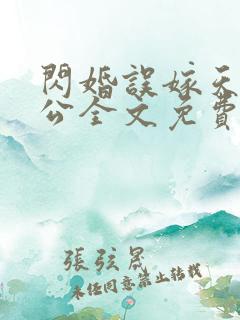 閃婚誤嫁天
公全文免費
張弦晟
未經同意禁止轉載